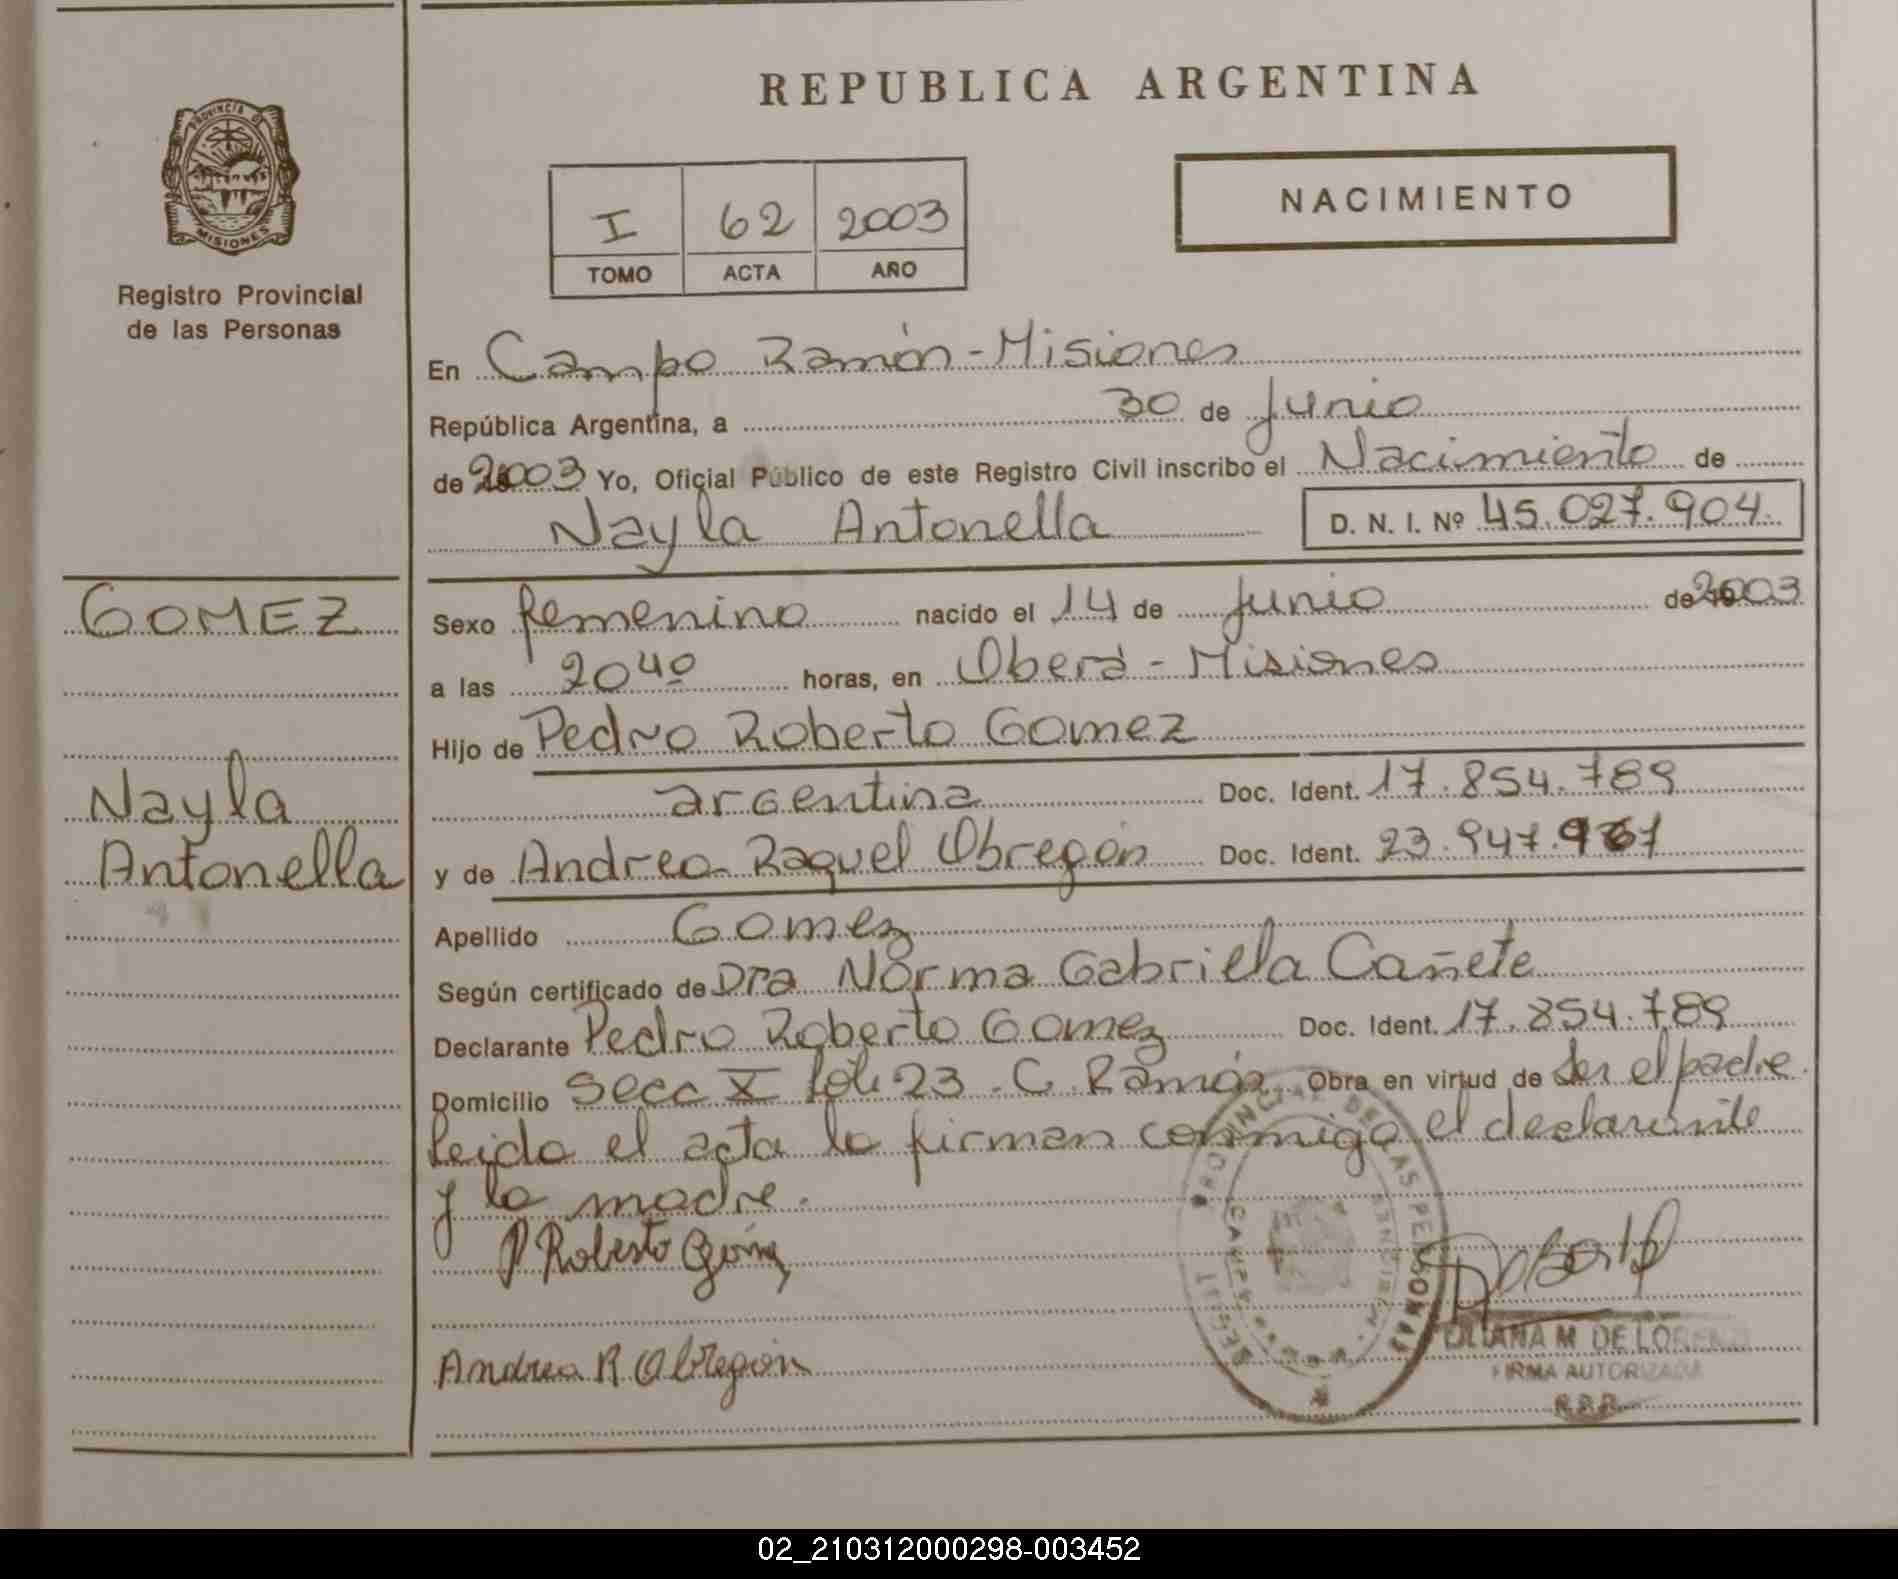 REPUBLICA ARGENTINA
PROVINCIA DE
MISIONES
Registro Provincial
de las Personas
I 62 2003
TOMO ACTA AÑO
NACIMIENTO
En Campo Ramón - Misiones
República Argentina, a 30 de Junio
de 2003 Yo, Oficial Público de este Registro Civil inscribo el Nacimiento de
Nayla Antonella D. N. I. Nº 45.027.904.
GOMEZ
Nayla
Antonella
Sexo femenino nacido el 14 de Junio de 2003
a las 20 40 horas, en Oberá - Misiones
Hijo de Pedro Roberto Gomez
argentina Doc. Ident. 17.854.789
y de Andrea Raquel Obregón Doc. Ident. 23.947.961
Apellido Gomez
Según certificado de Dra Norma Gabriela Cañete
Declarante Pedro Roberto Gomez Doc. Ident. 17.854.789
Domicilio Secc X lote 23 . C. Ramón Obra en virtud de ser el padre.
leida el acta la firman conmigo el declarante
y la madre.
P Roberto Gómez
Andrea R Obregón
PROVINCIAL DE LAS PERSONAS
LILIANA M. DE LORENZO
FIRMA AUTORIZADA
R.P.P.
02_210312000298-003452